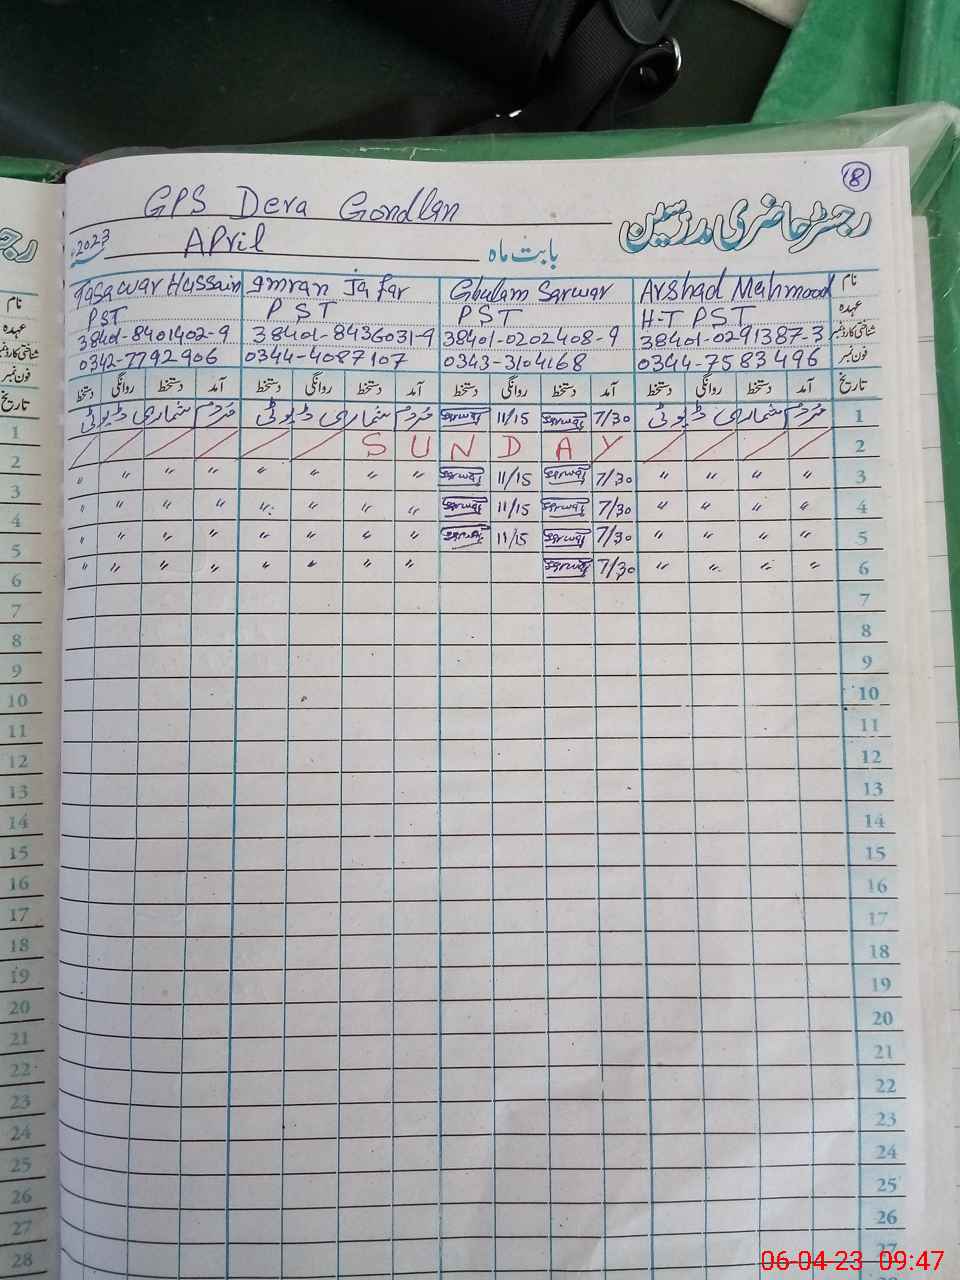 8
GPS Dera Gondlan
رجسٹر حاضری مدرسین
2023
April
بابت ماہ
Tasawar Hussain Imran Jafar Ghulam Sarwar Arshad Mehmood نام
PST PST PST H-T PST عہدہ
38401-8401402-9 38401-8436031-9 38401-0202408-9 38401-0291387-3 شناختی کارڈ نمبر
0342-7792906 0344-4087107 0343-3104168 0344-7583496 فون نمبر
تاریخ آمد دستخط روانگی دستخط آمد دستخط روانگی دستخط آمد دستخط روانگی دستخط آمد دستخط روانگی دستخط
1 مردم شماری ڈیوٹی 7/30 Sarwar 11/15 Sarwar مردم شماری ڈیوٹی مردم شماری ڈیوٹی
SUNDAY 2
3 〃 〃 〃 〃 7/30 Sarwar 11/15 Sarwar 〃 〃 〃 〃 〃 〃 〃 〃
4 〃 〃 〃 〃 7/30 Sarwar 11/15 Sarwar 〃 〃 〃 〃 〃 〃 〃 〃
5 〃 〃 〃 〃 7/30 Sarwar 11/15 Sarwar 〃 〃 〃 〃 〃 〃 〃 〃
6 〃 〃 〃 〃 7/30 Sarwar 〃 〃 〃 〃 〃 〃 〃 〃
7
8
9
10
11
12
13
14
15
16
17
18
19
20
21
22
23
24
25
26
27
رج
نام
عہدہ
شناختی کارڈ نمبر
فون نمبر
تاریخ
1
2
3
4
5
6
7
8
9
10
11
12
13
14
15
16
17
18
19
20
21
22
23
24
25
26
27
28
06-04-23 09:47